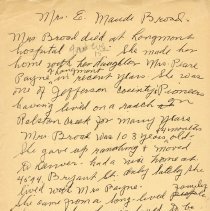 Mrs. E. Maude Broad.
Mrs Broad died at Longmont
hospital She made her
home with her daughter Mrs Pearl
Payne, in recent years. She was
one of Jefferson County Pioneers
having lived on a ranch
Ralston Creek for many years
Mrs Broad was 103 years old.
She gave up ranching & moved
to Denver. had a nice home at
4594 Bryant St. Only lately she
lived with Mrs Payne.
She came from a long-lived family